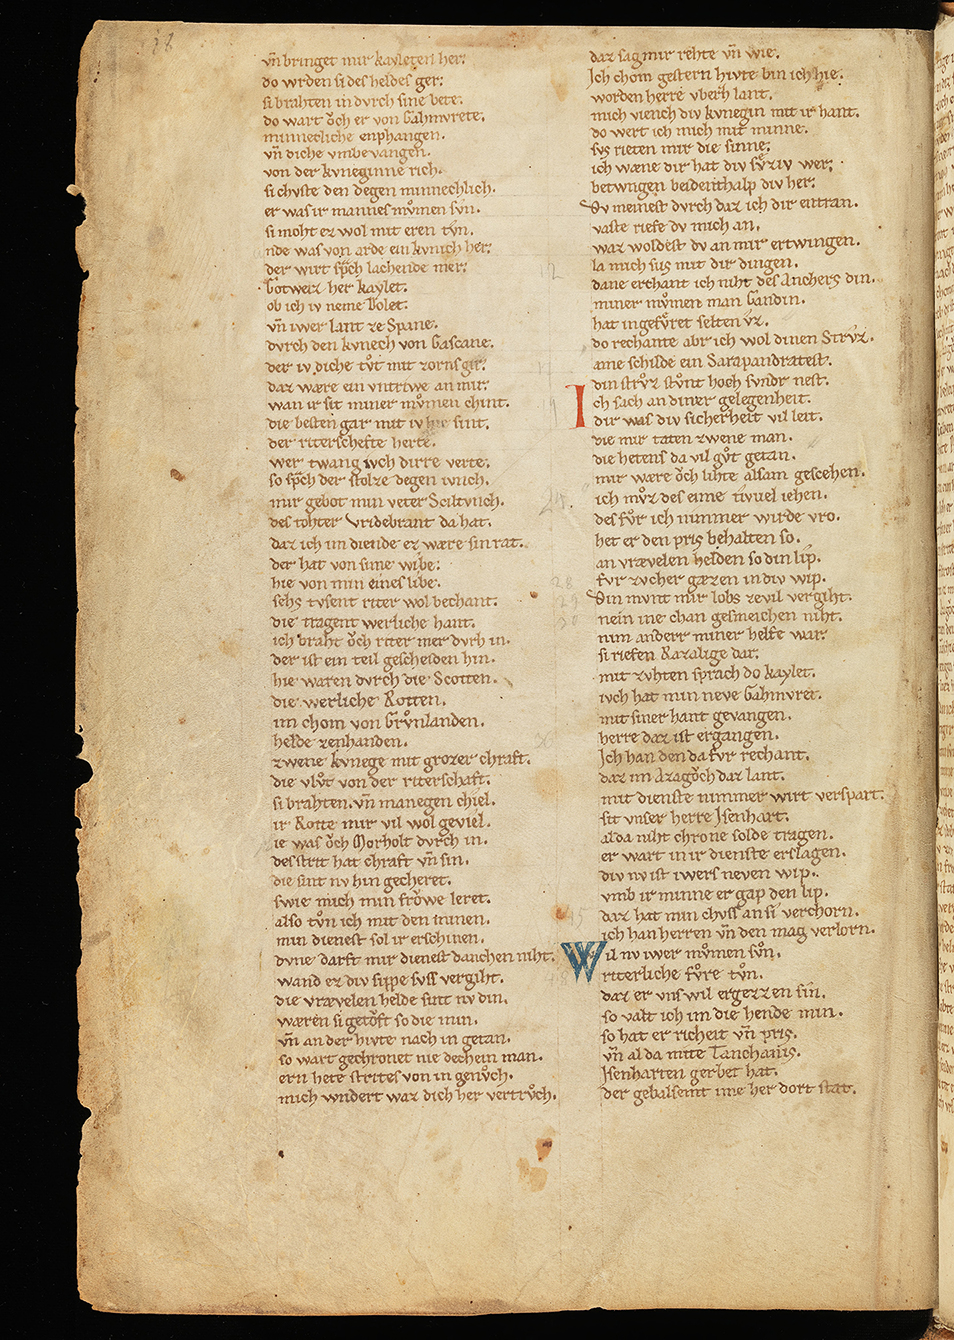 28
vn̄ bringet mir kayleten her.
do wrden si des heldes ger.
si brahten in dvrch sine bete.
do wart ǒch er von Gahmvrete.
minnecliche enphangen.
vn̄ diche vmbevangen.
von der kvneginne rich.
si chvste den degen minnechlich.
er was ir mannes mv̊men svn.
si moht ez wol mit eren tv̊n.
nde was von arde ein kvnich her.
der wirt sp̄ch lachende mer.
Gotweiz her kaylet.
ob ich iv neme Dolet.
vn̄ iwer lant ze Spane.
dvrch den kvnech von Gascane.
der iv diche tv̊t mit zorns gir.
daz wære ein vntriwe an mir.
wan ir sit miner mv̊men chint.
die besten gar mit iv hie sint.
der riterschefte herte.
wer twang ivch dirre verte.
so sp̄ch der stolze degen ivnch.
mir gebot min veter Sciltvnch.
des tohter Vridebrant da hat.
daz ich im diende ez wære sin rat.
der hat von sime wibe.
hie von min eines libe.
sehs tvsent riter wol bechant.
die tragent werliche hant.
ich braht ǒch riter mer dvrh in.
der ist ein teil gescheiden hin.
hie waren dvrch die Scotten.
die werliche Rotten.
im chom von Grv̊nlanden.
helde zenhanden.
zwene kvnege mit grozer chraft.
die vlv̊t von der riterschaft.
si brahten. vn̄ manegen chiel.
ir Rotte mir vil wol geviel.
ie was ǒch Morholt dvrch in.
des strit hat chraft vn̄ sin.
die sint nv hin gecheret.
swie mich min frǒwe leret.
also tv̊n ich mit den minen.
min dienest sol ir erschinen.
dvne darft mir dienest danchen niht.
wand ez div sippe svss vergiht.
die vrævelen helde sint nv din.
wæren si getǒft so die min.
vn̄ an der hivte nach in getan.
so wart gechronet nie dechein man.
ern hete strites von in genv̊ch.
mich wndert waz dich her vertrv̊ch.
daz sag mir rehte vn̄ wie.
Ich chom gestern hivte bin ich hie.
worden herre vberh lant.
mich viench div kvnegin mit ir hant.
do wert ich mich mit minne.
svs rieten mir die sinne.
ich wæne dir hat div sv̊ziv wer.
betwngen beidenthalp div her.
Dv meinest dvrch daz ich dir entran.
vaste riefe dv mich an.
waz woldest dv an mir ertwingen.
la mich sus mit dir dingen.
dane erchant ich niht des Anchers din.
miner mv̊men man Gandin.
hat in gefv̊ret selten vz.
do rechante abr ich wol dinen Strvz.
ame schilde ein Sarapandratest.
din strvz stv̊nt hoch svndr nest.
Ich sach an diner gelegenheit.
dir was div sicherheit vil leit.
die mir taten zwene man.
die hetens da vil gv̊t getan.
mir wære ǒch lihte alsam geschehen.
ich mv̊z des eime tivuel iehen.
des fv̊r ich nimmer wirde vro.
het er den pris behalten so.
an vrævelen helden so din lip.
fvr zvcher gæzen in div wip.
Din mvnt mir lobs zevil vergiht.
nein ine chan gesmeichen niht.
nim anderr miner helfe war.
si riefen Razalige dar.
mit zvhten sprach do kaylet.
ivch hat min neve Gahmvret.
mit siner hant gevangen.
herre daz ist ergangen.
Ich han den da fvr rechant.
daz im Azagǒch daz lant.
mit dienste nimmer wirt verspart.
sit vnser herre Isenhart.
alda niht chrone solde tragen.
er wart in ir dienste erslagen.
div nv ist iwers neven wip.
vmb ir minne er gap den lip.
daz hat min chvss an si verchorn.
ich han herren vn̄ den mag verlorn.
Wil nv iwer mv̊men sv̊n.
riterliche fv̊re tv̊n.
daz er vns wil ergezzen sin.
so valt ich im die hende min.
so hat er richeit vn̄ pris.
vn̄ al da mite Tanchanis.
Isenharten gerbet hat.
der gebalsemt ime her dort stat.